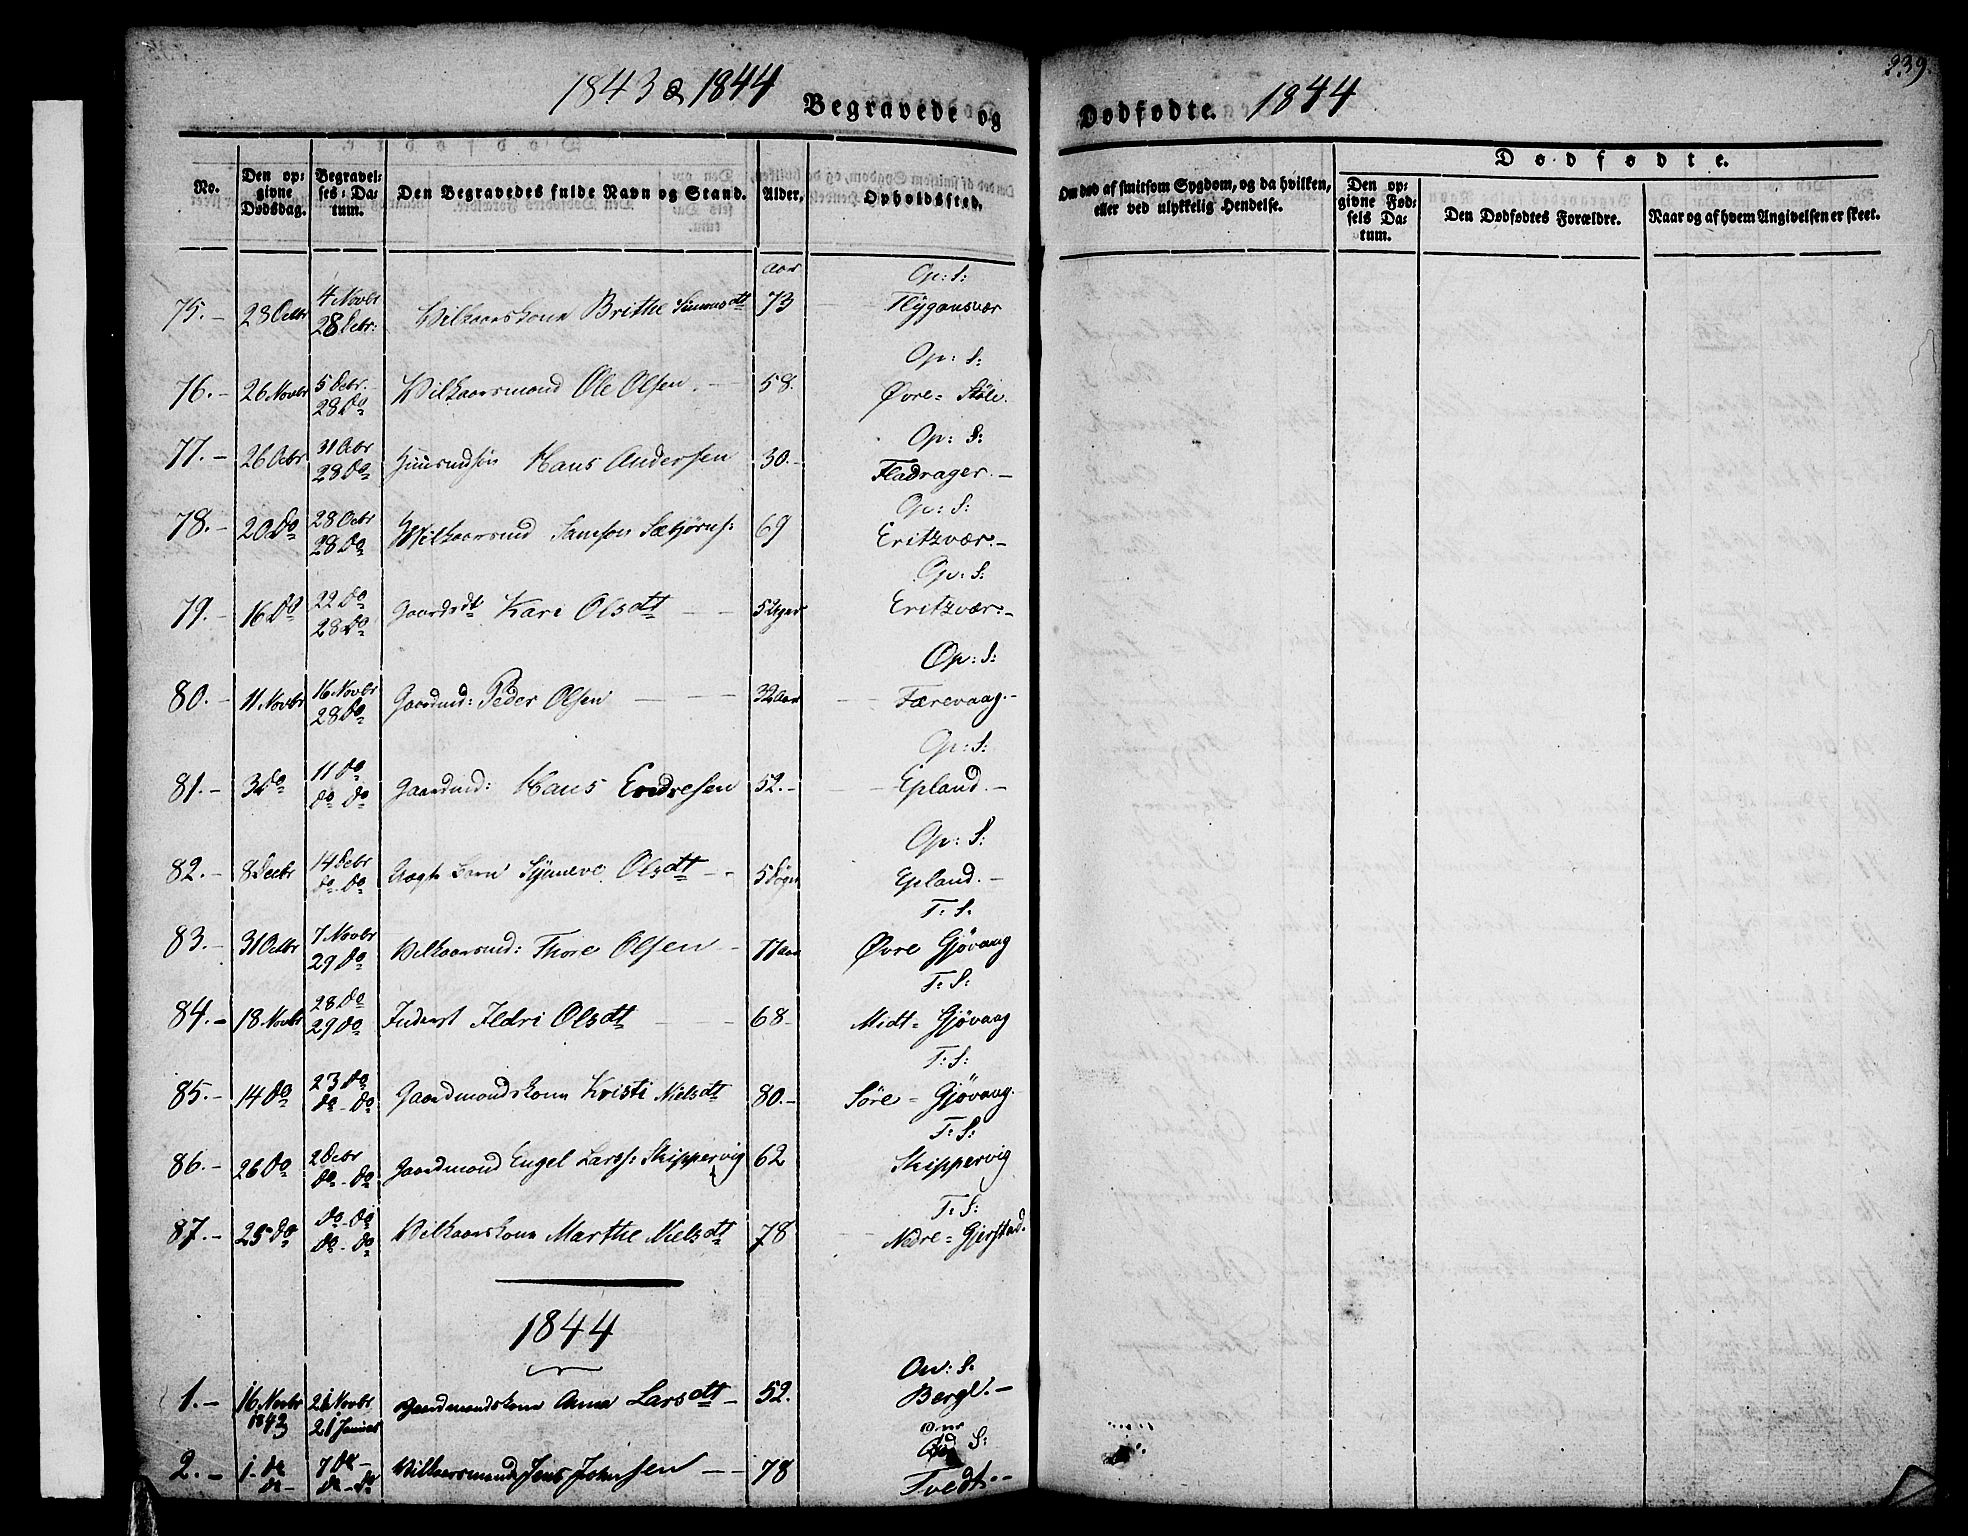 1843 & 1844
Begravede og
Dødfødte. 1844
239.
No.
Den op=
givne
Dødsdag.
Begravel=
ses=Da=
tum.
Den Begravedes fulde Navn og Stand.
Alder.
Opholdssted.
Om død af smitsom Sygdom, og da hvilken,
eller ved ulykkelig Hendelse.
Dødfødte.
Den op=
givne Fød=
sels Da=
tum.
Den Dødfødtes Forældre.
Naar og af hvem Angivelsen er skeet.
aar
Op: S:
75.- 28 Octbr 4 Novbr Vilkaarskone Brithe Simonsdt 73 Flygansvær
28 Decbr:
Op: S:
76.- 26 Novbr 5 Decbr. Vilkaarsmand Ole Olsen. 58. Øvre= Støle.
28 Do
Op: S:
77.- 26 Octbr 31 Octbr Hans Andersen 30.- Fladrager.-
28 Do
Op: S:
78.- 20 Do 28 Octbr Vilkaarsmd Samson Sæbjørns: 69 Eritzvær.-
28 Do
Op: S:
79.- 16 Do 22 Do Gaardsdt Kari Olsdt 5 Uger Eritzvær.-
28 Do
Op: S:
80.- 11 Novbr 16 Novbr Gaardmd: Peder Olsen 32 Aar Færevaag.-
28 Do
Op: S:
81.- 3 Do 11 Do Gaardmd: Hans Endresen 52.- Epland.-
Do Do
Op: S:
82.- 8 Decbr 14 Decbr Uægte Barn Synneve Olsdt 5 Døgn Epland.-
Do-Do
T: S.
83.- 31 Octbr 7 Novbr Vilkaarsmd: Thore Olsen 77 aar Øvre Gjøvaag
29 Do
T: S:
84.- 18 Novbr 28 Do Inderst Ildri Olsdt 68- Midt= Gjøvaag
29 Do
T: S:
85.- 14 Do 23 Do Gaardmandskone Kristi Nielsdt 80.- Søre= Gjøvaag.
Do-Do
T: S:
86.- 26 Do 2 Decbr Gaardmand Engel Larss: Skippervig 62 Skippervig
Do-Do
T: S:
87.- 25 Do Do-Do Vilkaarskone Marthe Nielsdt 78 Nedre= Gjerstad.
Do-Do
1844
S:
1.- 16 Novbr 21 Novbr Gaardmandskone Anna Larsdt 52. Berge.-
1843 21 Januar
S:
2.- 1-De 7 De- Vilkaarsmand Jens Johnsen 78 Tvedt.-
De- De-De